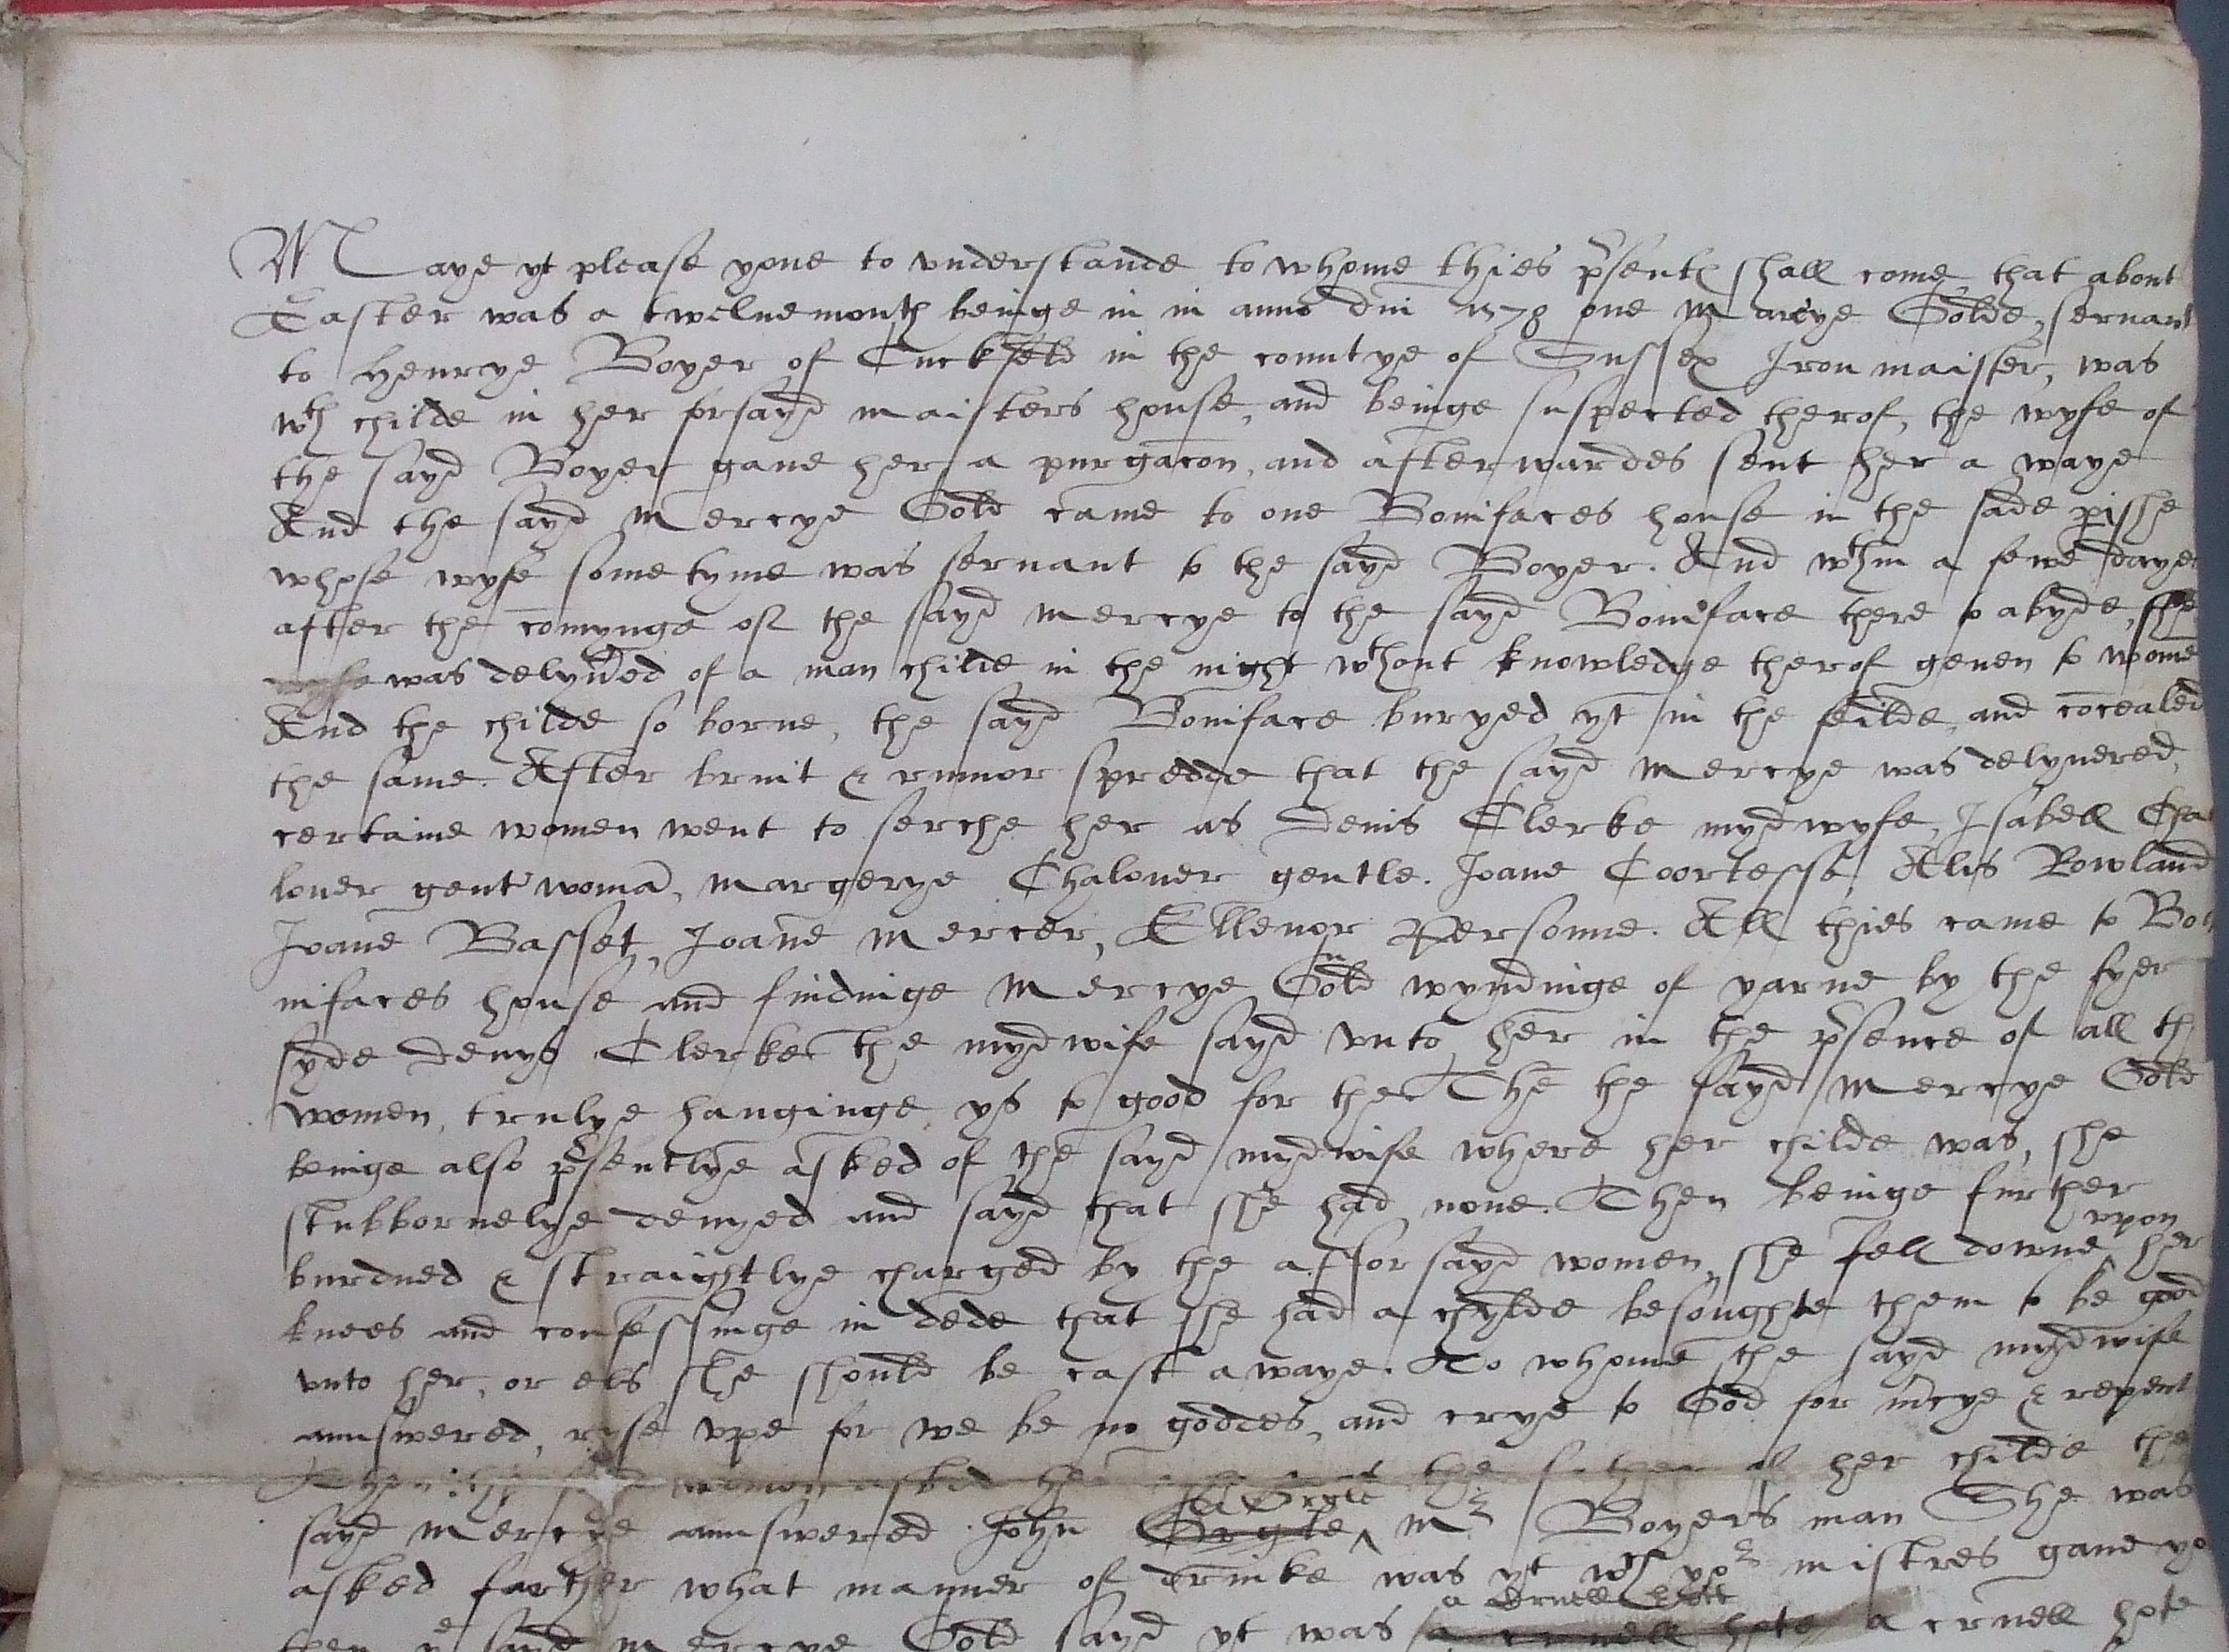 Maye yt please youe to understande to whome thies p̄sents shall come that about
Easter was a tweluemonth beinge in in anno dm̄ 1578 one Marcye Golde, seruant
to Henrye Boyer of Cuckfeld in the countye of Sussex Iron maister, was
wth childe in her forsayd maisters house, and beinge suspected therof, the wyfe of
the sayd Boyer gaue her a purgacon, and afterwardes sent her a waye
And the sayd Mercye Gold came to one Bonifaces house in the sade pishe
whose wyfe sometyme was seruant to the sayd Boyer. And wthin a fewe dayes
after the comynge of the sayd Mercye to the sayd Boniface there to abyde, she
was delyũed of a man childe in the night wthout knowledge therof geuen to wome
And the childe so borne, the sayd Boniface buryed yt in the feilde, and cōcealed
the same. After bruit & rumor spredde that the sayd Mercye was delyuered,
certaine women went to serche her as Denis Clerke mydwyfe, Isabell Cha
loner gent womā, Margerye Chaloner gentle. Joane Coortesse Alis Rowland
Joane Basset, Joane Mercer, Ellenor Personne. All thies came to Bo
nifaces house and findinge Mercye Gold wyndinge of yarne by the fyer
syde Denys Clerke the mydwife sayd vnto her in the p̄sence of all th
women, trulye hanginge ys to good for the The the sayd Mercye Gold
beinge also p̄sentlye asked of the sayd mydwife where her childe was, she
stubbornelye denyed and sayd that she had none. Then beinge further
burdned & straightlye charged by the afforsayd women, she fell downe vpon her
knees and confessinge in dede that she had a chylde besoughte them to be good
vnto her, or els she should be cast awaye. To whome the sayd mydwife
annswered, ryse vpe for we be no goddes, and crye to God for mcye & repent
women asked her the father of her childe the
sayd Mercye annswered John Mr Boyers man She was
asked farther what manner of drinke was yt wch yor mistres gaue yo
then ye sayd Mercye Gold sayd yt was a cruell hote